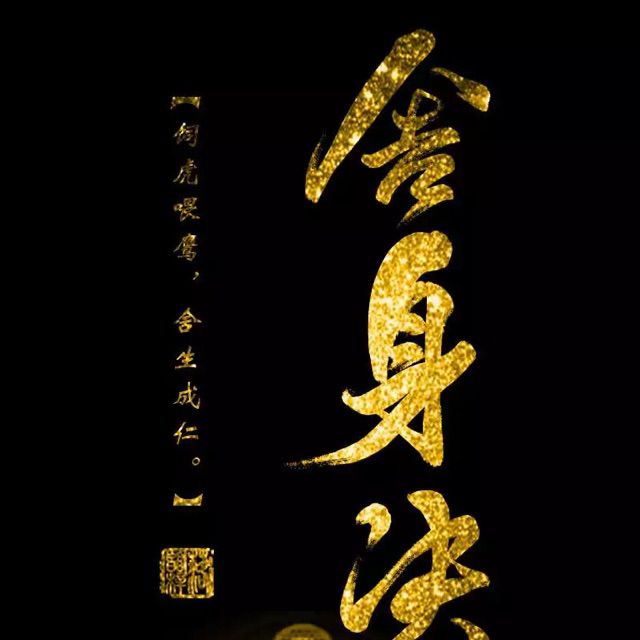 舍身法
【饲虎喂鹰，舍生成仁。】